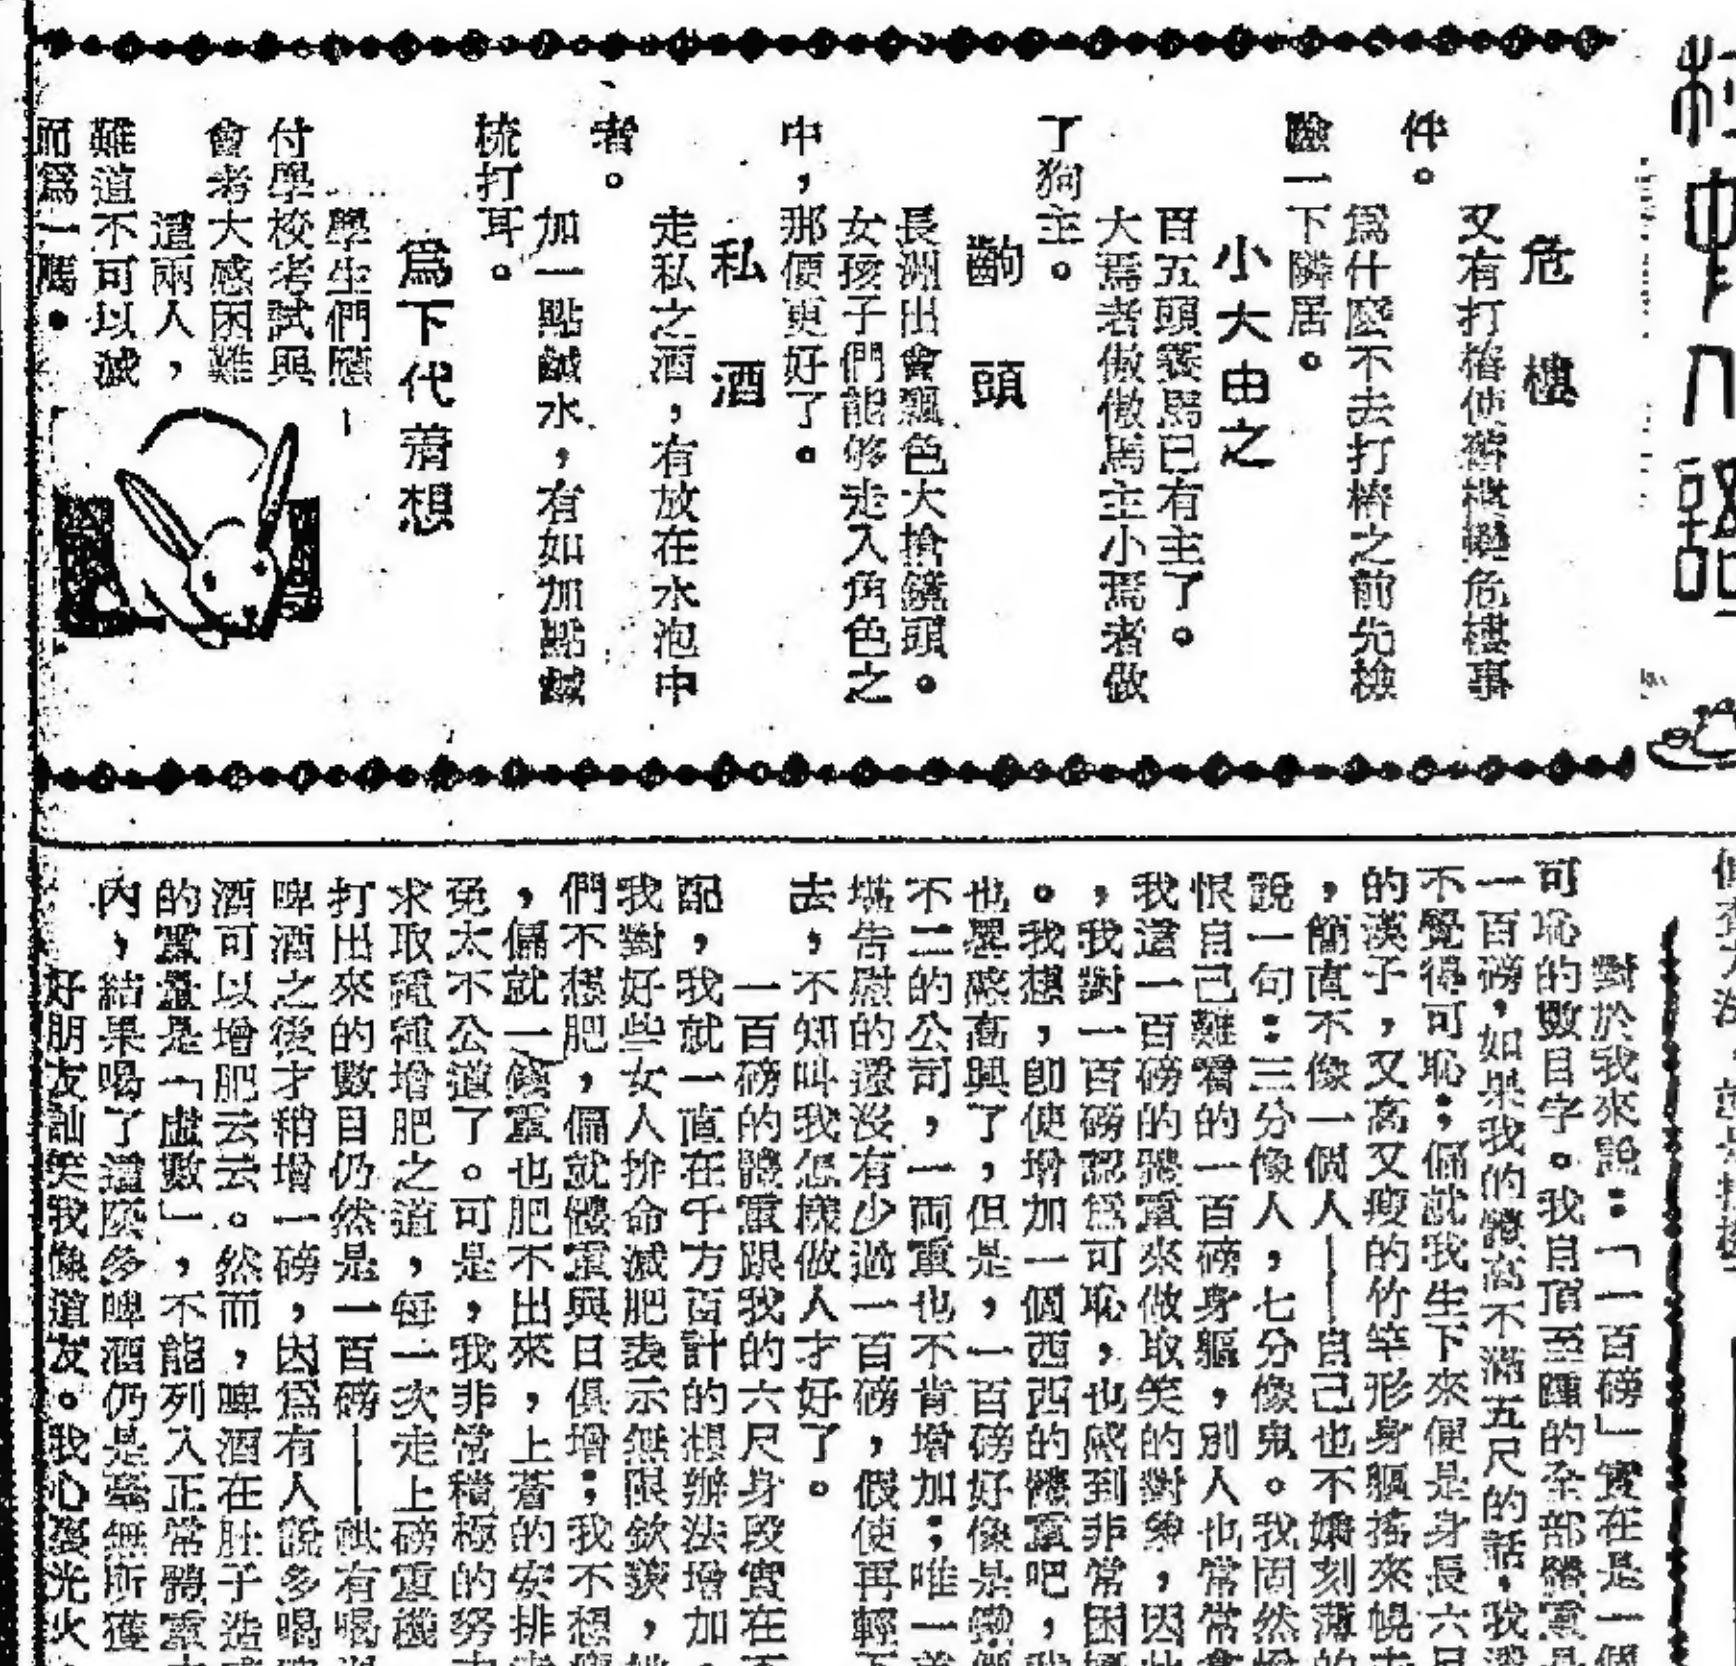 危樓
又有打樁使舊樓變危樓事
件。
爲什麼不去打樁之前先檢
驗一下隣居。
小大由之
百五頭養馬已有主了。
大焉者做做馬主小焉者做
了狗主。
齣頭
長洲出會飄色大搶鏡頭。
女孩子們能够走入角色之
中,那便更好了。
私酒
走私之酒,有放在水泡中
者。
加一點鹹水,有如加點鹹
梳打耳。
爲下代着想
學生們應
付學校考試與
會考大感困難
這兩人,
難道不可以減
而爲一嗎。
對於我來說:「一百磅」實在是一個
可恥的數目字。我自頂至踵的全部體重是
一百磅,如果我的體高不滿五尺的話,我還
不覺得可恥;偏就我生下來便是身長六尺
的漢子,又高又瘦的竹竿形身軀搖來幌去
,簡直不像一個人——自己也不嫌刻薄的
說一句:三分像人,七分像鬼。我固然
恨自己難看的一百磅身軀,別人也常常拿
我這一百磅的體重來做取笑的對象,因此
,我對一百磅認爲可恥,也感到非常困擾
。我想,卽使增加一個西西的體重吧,我
也會感高興了,但是,一百磅好像是
不二的公司,一兩重也不肯增加;唯一
告慰的還沒有少過一百磅,假使再輕下
去,不知叫我怎樣做人才好了。
一百磅的體重跟我的六尺身段實在不
配,我就一直在千方百計的想辦法增加。
我對好些女人拚命減肥表示無限欽羨,她
們不想肥,偏就體重與日俱增;我不想瘦
,偏就一磅重也肥不出來,上蒼的安排
太不公道了。可是,我非常積極的努力
求取種種增肥之道,每一次走上磅重機
打出來的數目仍然是一百磅——祇有喝
啤酒之後才稍增一磅,因爲有人說多喝啤
酒可以增肥云云。然而,啤酒在肚子造成
的重量是「虛數」,不能列入正常體重
內,結果喝了這麽多啤酒仍是毫無所獲
好朋友訕笑我像道友。我心裏光火